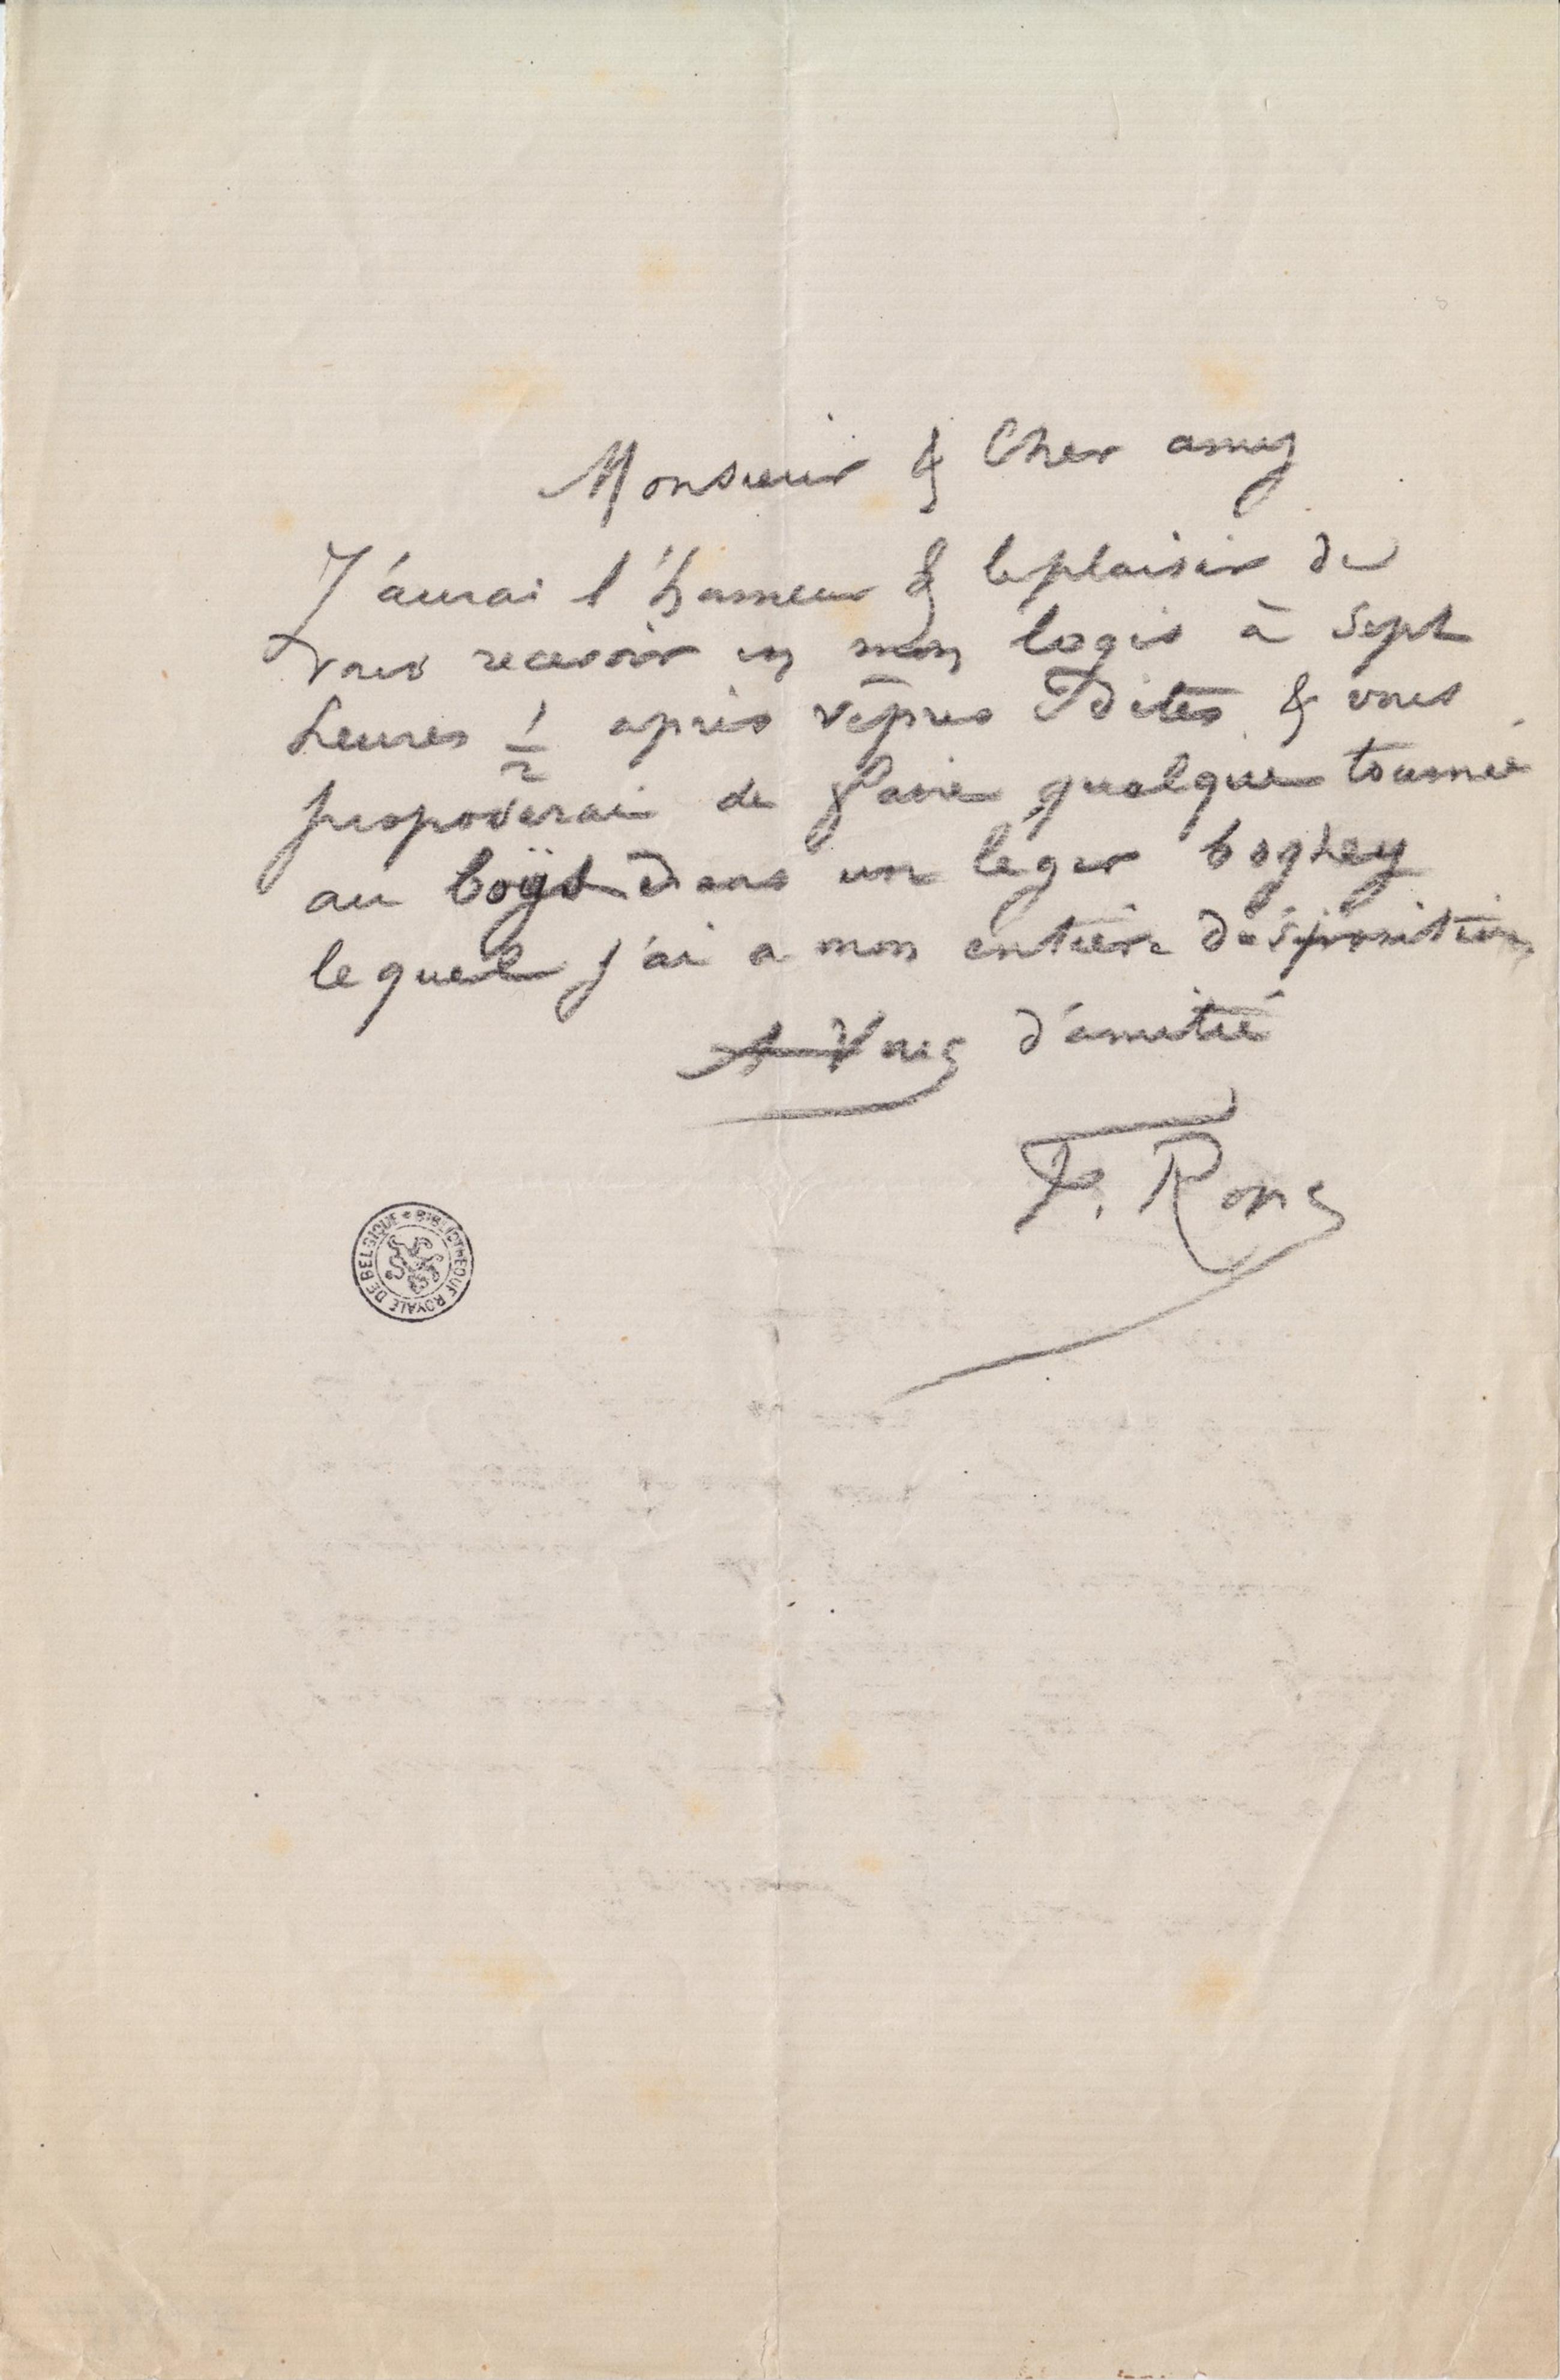 Monsieur & Cher amy
J'aurai l'honneur & le plaisir de
vous recevoir en mon logis à Sept
heures 1/2 après vêpres dites & vous
proposerai de faire quelque tournée
au boys dans un léger boghey
lequel j'ai a mon entière disposition
A Vous d'amitié
F. Rops
BIBLIOTHEQUE ROYALE DE BELGIQUE